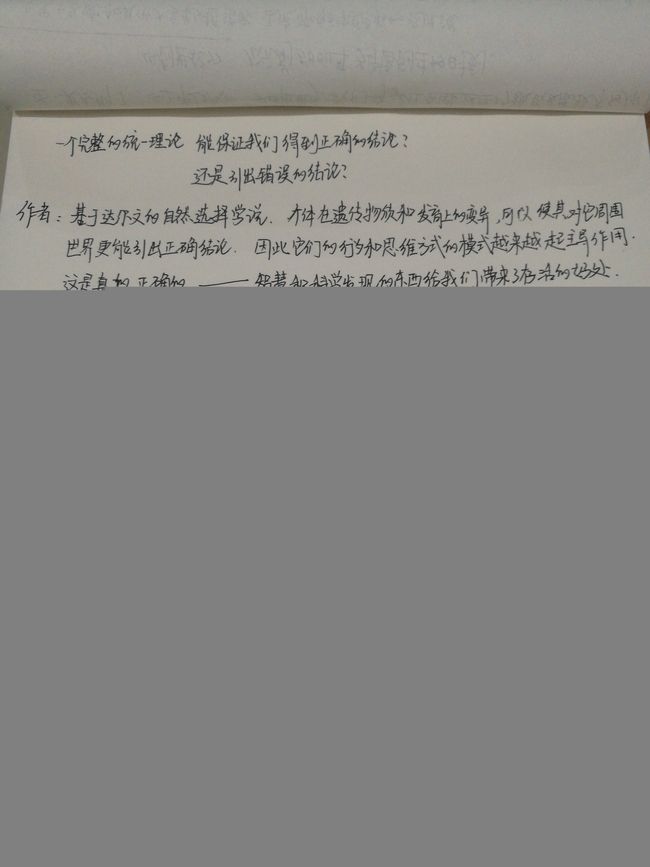 一个完整的统一理论 能保证我们得到正确的结论?
还是引出错误的结论?
作者:基于达尔文的自然选择学说. 个体在遗传物质和发育上的变异,可以使其对它周围
世界更能引出正确结论. 因此它们的行为和思维方式的模式越来越起主导作用.
这是真的 正确的 —— 智慧和科学发现的东西给我们带来了存活的好处.